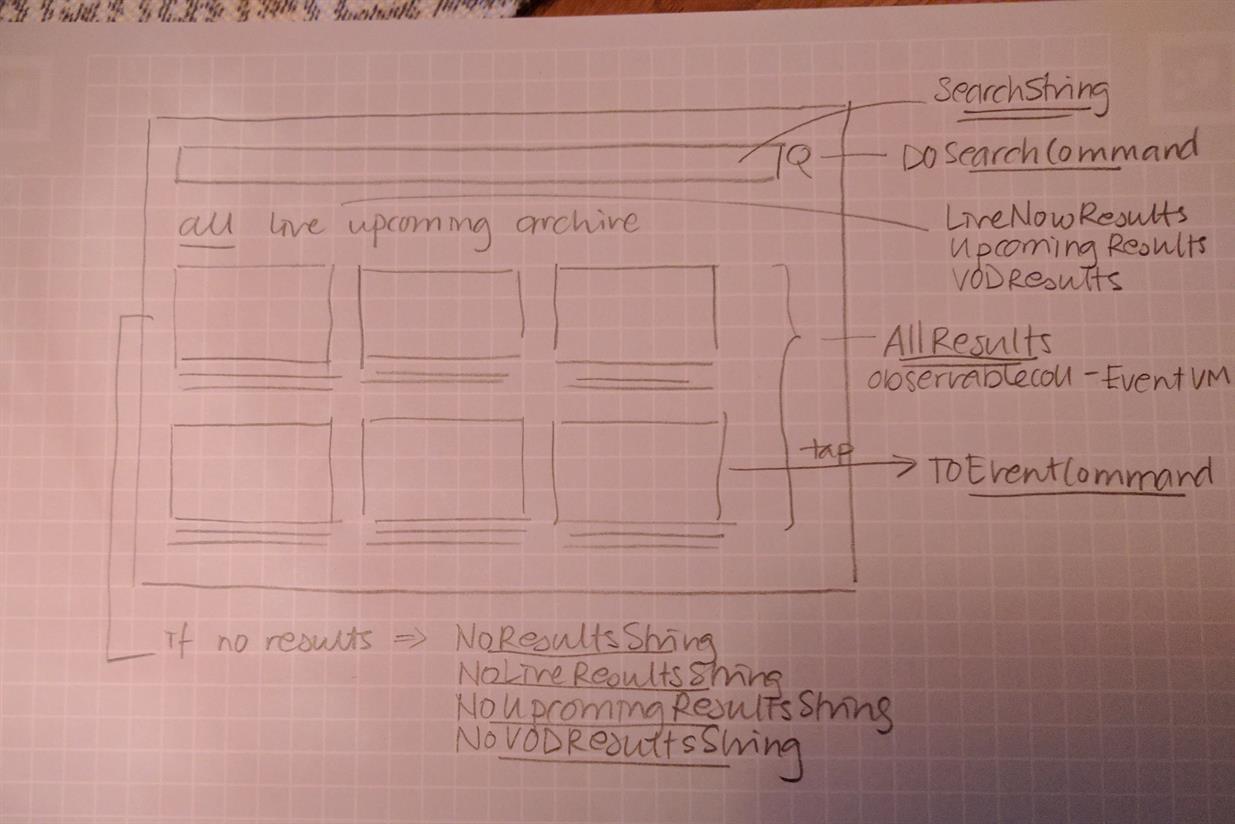 SearchString
DoSearchCommand
all live upcoming archive
LiveNowResults
UpcomingResults
VODResults
AllResults
observablecoll - EventVM
tap
ToEventCommand
If no results => NoResultsString
NoLiveResultsString
NoUpcomingResultsString
NoVODResultsString